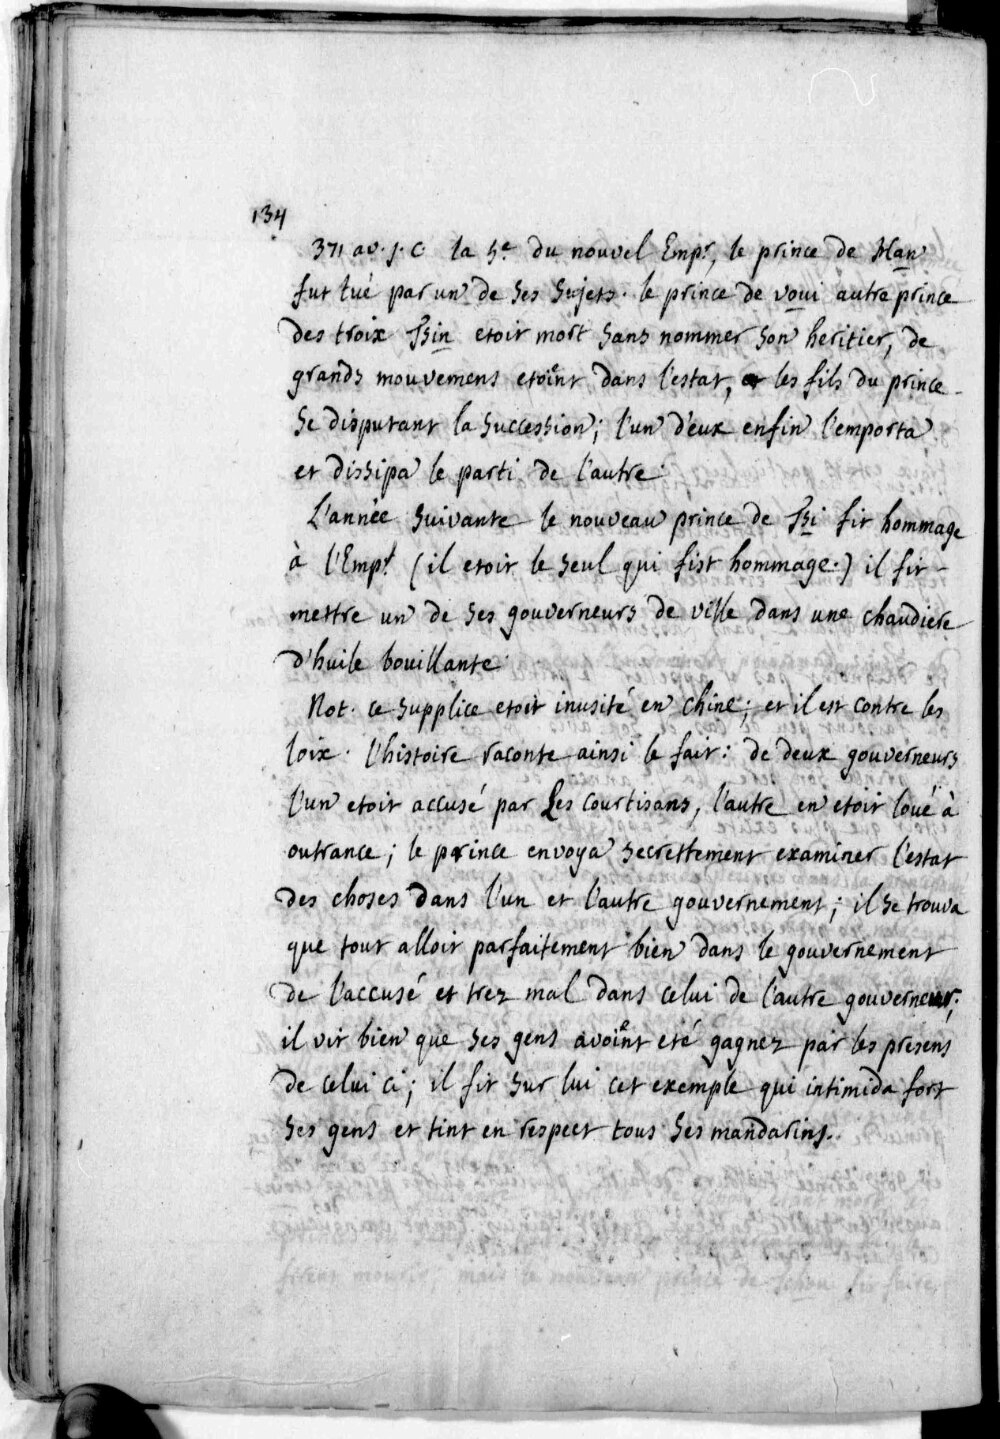 134
371 av. j. C. la 5.e du nouvel Emp.r, le prince de Han
fut tué par un de ses sujets. le prince de voui autre prince
des troix Tsin etoit mort sans nommer son heritier, de
grands mouvemens etoient dans l'estat, et les fils du prince
se disputant la succession; l'un d'eux enfin l'emporta
et dissipa le parti de l'autre.
L'année suivante le nouveau prince de Tsi fit hommage
à l'Emp.r (il etoit le seul qui fist hommage.) il fit
mettre un de ses gouverneurs de ville dans une chaudiere
d'huile bouillante.
Not. ce supplice etoit inusité en chine; et il est contre les
loix. l'histoire raconte ainsi le fait: de deux gouverneurs
l'un etoit accusé par Les courtisans, l'autre en etoit loué à
outrance; le prince envoya secrettement examiner l'estat
des choses dans l'un et l'autre gouvernement; il se trouva
que tout alloit parfaitement bien dans le gouvernement
de l'accusé et trez mal dans celui de l'autre gouverneur;
il vit bien que ses gens avoient eté gagnez par les presens
de celui ci; il fit sur lui cet exemple qui intimida fort
ses gens et tint en respect tous ses mandarins.
firent mourir, mais le nouveau prince de Tchou fit faire